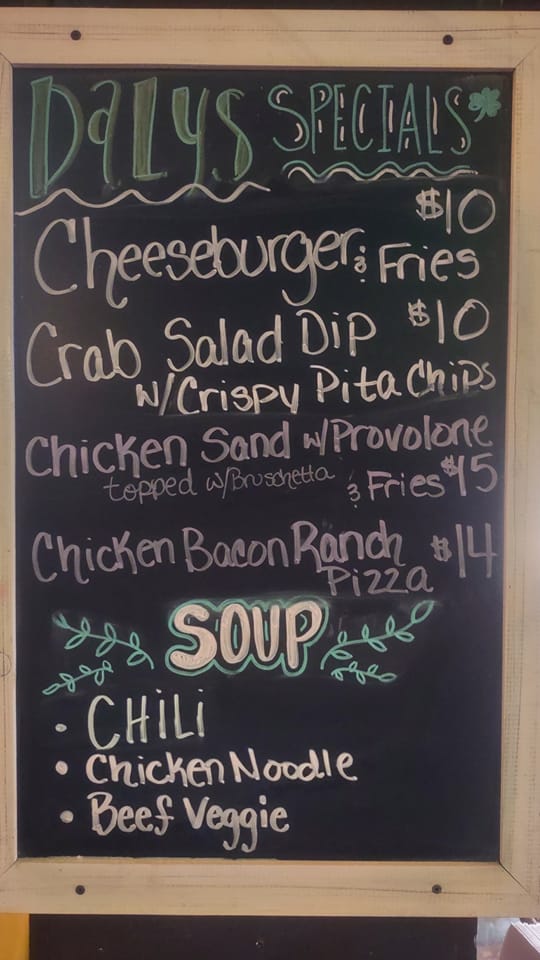 DaLys SPECIALS
$10
Cheeseburger & Fries
Crab Salad Dip $10
w/Crispy Pita Chips
Chicken Sand w/Provolone
topped w/Bruschetta & Fries $15
Chicken Bacon Ranch $14
Pizza
SOUP
• CHiLi
• Chicken Noodle
• Beef Veggie